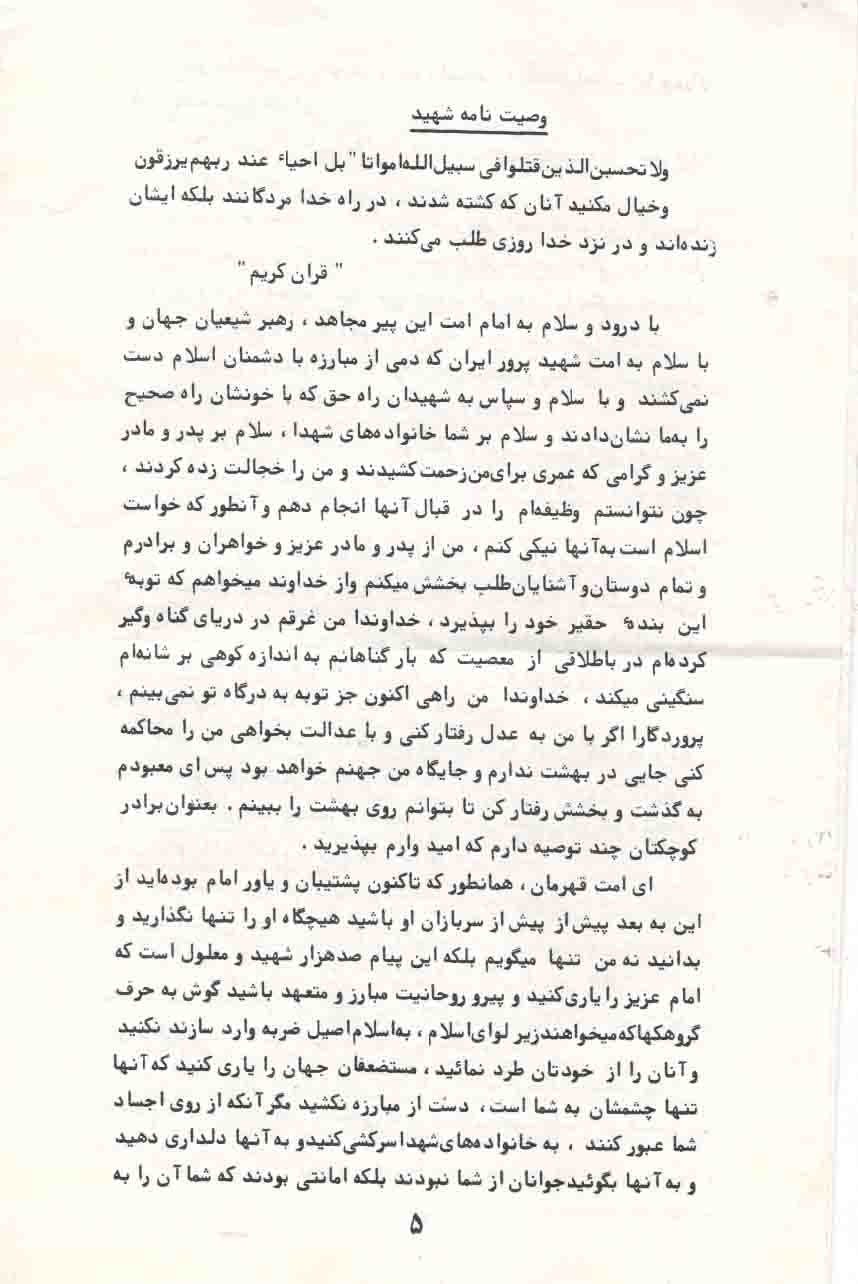 وصیت نامه شهید
ولا تحسبن الذین قتلوا فی سبیل الله امواتا" بل احیاء عند ربهم یرزقون
وخیال مکنید آنان که کشته شدند ، در راه خدا مردگانند بلکه ایشان
زنده‌اند و در نزد خدا روزی طلب می‌کنند .
" قران کریم "
با درود و سلام به امام امت این پیر مجاهد ، رهبر شیعیان جهان و
با سلام به امت شهید پرور ایران که دمی از مبارزه با دشمنان اسلام دست
نمی‌کشند و با سلام و سپاس به شهیدان راه حق که با خونشان راه صحیح
را به‌ما نشان‌دادند و سلام بر شما خانواده‌های شهدا ، سلام بر پدر و مادر
عزیز و گرامی که عمری برای‌من‌زحمت‌کشیدند و من را خجالت زده کردند ،
چون نتوانستم وظیفه‌ام را در قبال آنها انجام دهم و آنطور که خواست
اسلام است به‌آنها نیکی کنم ، من از پدر و مادر عزیز و خواهران و برادرم
و تمام دوستان‌و آشنایان‌طلب بخشش میکنم واز خداوند میخواهم که توبهٔ
این بندهٔ حقیر خود را بپذیرد ، خداوندا من غرقم در دریای گناه وگیر
کرده‌ام در باطلاقی از معصیت که بار گناهانم به اندازه کوهی بر شانه‌ام
سنگینی میکند ، خداوندا من راهی اکنون جز توبه به درگاه تو نمی‌بینم ،
پروردگارا اگر با من به عدل رفتار کنی و با عدالت بخواهی من را محاکمه
کنی جایی در بهشت ندارم و جایگاه من جهنم خواهد بود پس ای معبودم
به گذشت و بخشش رفتار کن تا بتوانم روی بهشت را ببینم . بعنوان‌برادر
کوچکتان چند توصیه دارم که امید وارم بپذیرید .
ای امت قهرمان ، همانطور که تاکنون پشتیبان و یاور امام بوده‌اید از
این به بعد پیش از پیش از سربازان او باشید هیچگاه او را تنها نگذارید و
بدانید نه من تنها میگویم بلکه این پیام صدهزار شهید و معلول است که
امام عزیز را یاری‌کنید و پیرو روحانیت مبارز و متعهد باشید گوش به حرف
گروهکهاکه‌میخواهندزیر لوای‌اسلام ، به‌اسلام‌اصیل ضربه وارد سازند نکنید
و آنان را از خودتان طرد نمائید ، مستضعفان جهان را یاری کنید که آنها
تنها چشمشان به شما است ، دست از مبارزه نکشید مگر آنکه از روی اجساد
شما عبور کنند ، به خانواده‌های‌شهداسرکشی‌کنیدو به‌آنها دلداری دهید
و به آنها بگوئیدجوانان از شما نبودند بلکه امانتی بودند که شما آن را به
۵